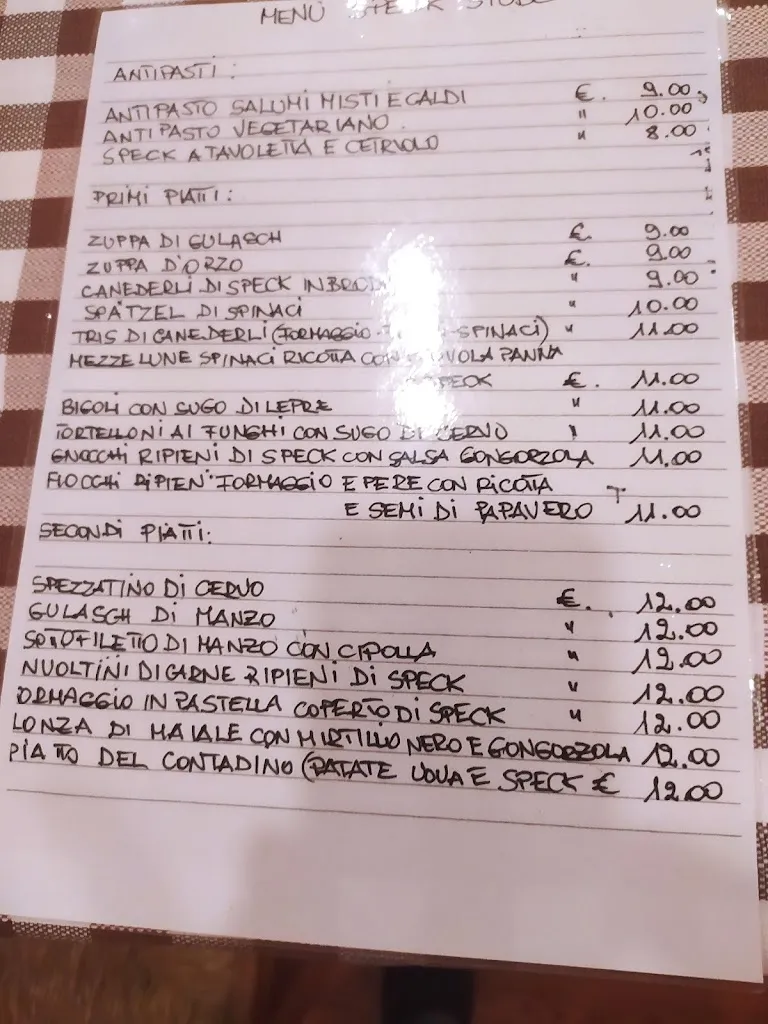 MENÙ SPECK STUBE
ANTIPASTI:
ANTIPASTO SALUMI MISTI E CALDI €. 9.00
ANTIPASTO VEGETARIANO " 10.00
SPECK A TAVOLETTA E CETRIOLO " 8.00
PRIMI PIATTI:
ZUPPA DI GULASCH €. 9.00
ZUPPA D'ORZO €. 9.00
CANEDERLI DI SPECK IN BRODO " 9.00
SPÄTZEL DI SPINACI " 10.00
TRIS DI CANEDERLI (FORMAGGIO - SPINACI) " 11.00
MEZZELUNE SPINACI RICOTTA CON PANNA
SPECK €. 11.00
BIGOLI CON SUGO DI LEPRE " 11.00
TORTELLONI AI FUNGHI CON SUGO DI CERVO " 11.00
GNOCCHI RIPIENI DI SPECK CON SALSA GONGORZOLA 11.00
FIOCCHI RIPIENI FORMAGGIO E PERE CON RICOTTA
E SEMI DI PAPAVERO 11.00
SECONDI PIATTI:
SPEZZATINO DI CERVO €. 12.00
GULASCH DI MANZO " 12.00
SOTTOFILETTO DI MANZO CON CIPOLLA " 12.00
NUOLTINI DI CARNE RIPIENI DI SPECK " 12.00
ORMAGGIO IN PASTELLA COPERTO DI SPECK " 12.00
LONZA DI MAIALE CON MIRTILLO NERO E GONGORZOLA 12.00
PIATTO DEL CONTADINO (PATATE UOVA E SPECK € 12.00